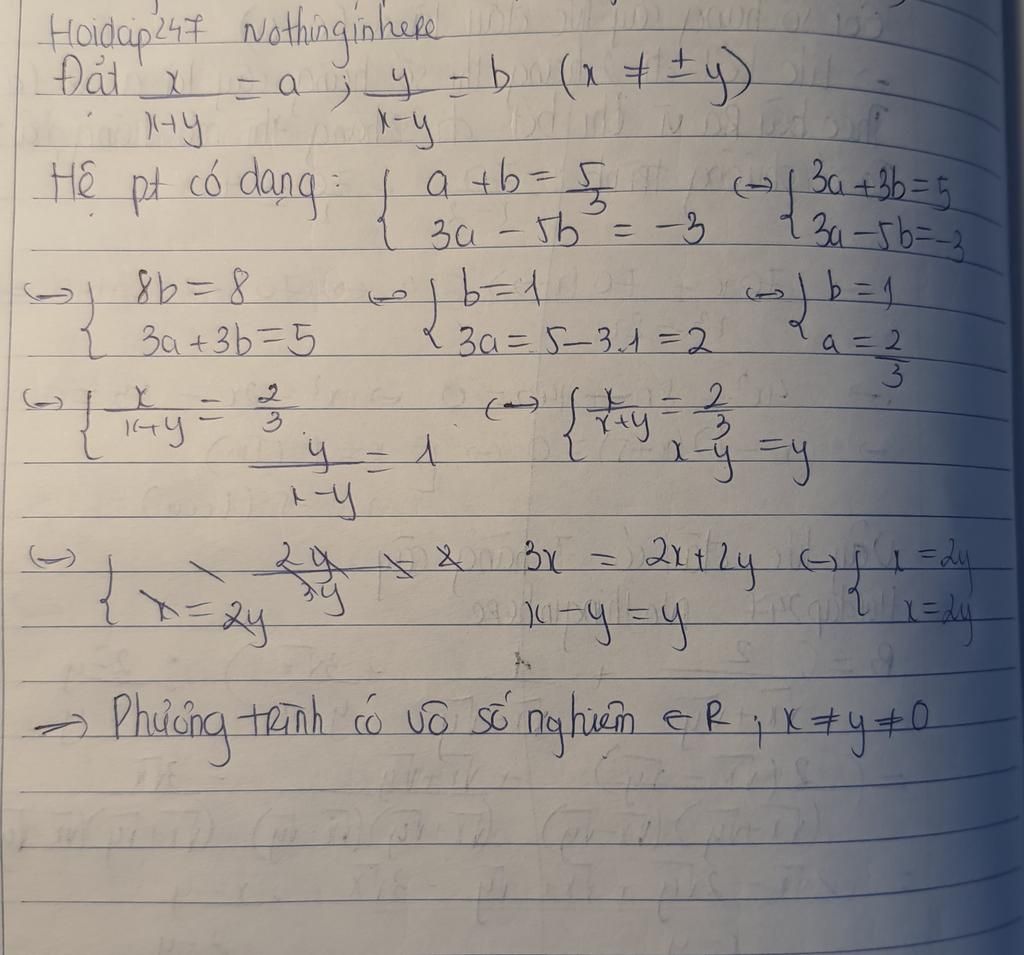 Hoidap247 Nothinginhere
Đặt x/(x+y) = a ; y/(x-y) = b (x ≠ ±y)
Hệ pt có dạng: { a + b = 5/3 ; 3a - 5b = -3 <-> { 3a + 3b = 5 ; 3a - 5b = -3
<-> { 8b = 8 ; 3a + 3b = 5 <-> { b = 1 ; 3a = 5 - 3.1 = 2 <-> { b = 1 ; a = 2/3
<-> { x/(x+y) = 2/3 ; y/(x-y) = 1 <-> { x/(x+y) = 2/3 ; x - y = y
<-> { 2y/3y = 2 ; x = 2y 3x = 2x + 2y ; x - y = y <-> { x = 2y ; x = 2y
=> Phương trình có vô số nghiệm ∈ R ; x ≠ y ≠ 0